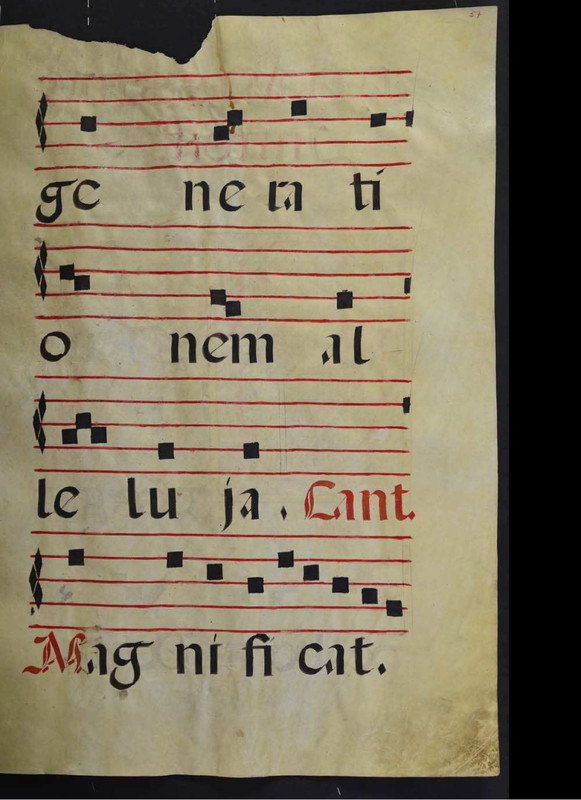 57
ge ne ra ti
o nem al
le lu ja. Cant.
Mag ni fi cat.